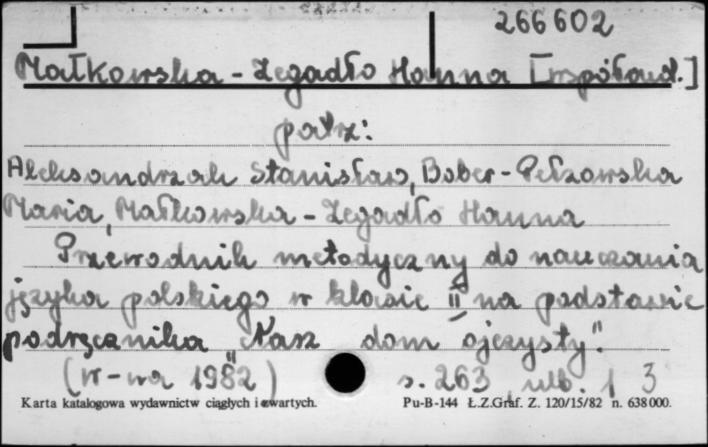 266602
Małkowska-Zegadło Hanna [współaut.]
patrz:
Aleksandrzak Stanisław, Bober-Pełzowska
Maria, Małkowska-Zegadło Hanna
Przewodnik metodyczny do nauczania
języka polskiego w klasie II na podstawie
podręcznika "Nasz dom ojczysty".
(W-wa 1982) s. 263, nlb. 1, 3
Karta katalogowa wydawnictw ciągłych i zwartych. Pu-B-144 Ł.Z.Graf. Z. 120/15/82 n. 638000.